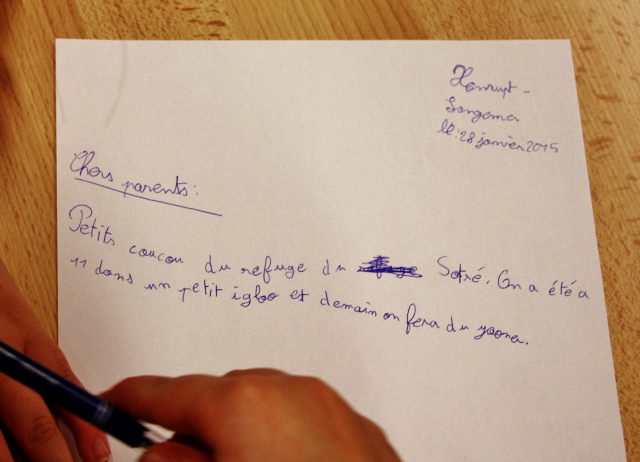 Xonrupt -
Longemer
le: 28 janvier 2015
Chers parents:
Petits coucou du refuge du Sotré. On a été a
11 dans un petit igloo et demain on fera du yoona.